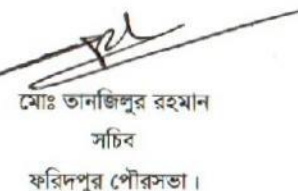 মোঃ তানজিলুর রহমান
সচিব
ফরিদপুর পৌরসভা।